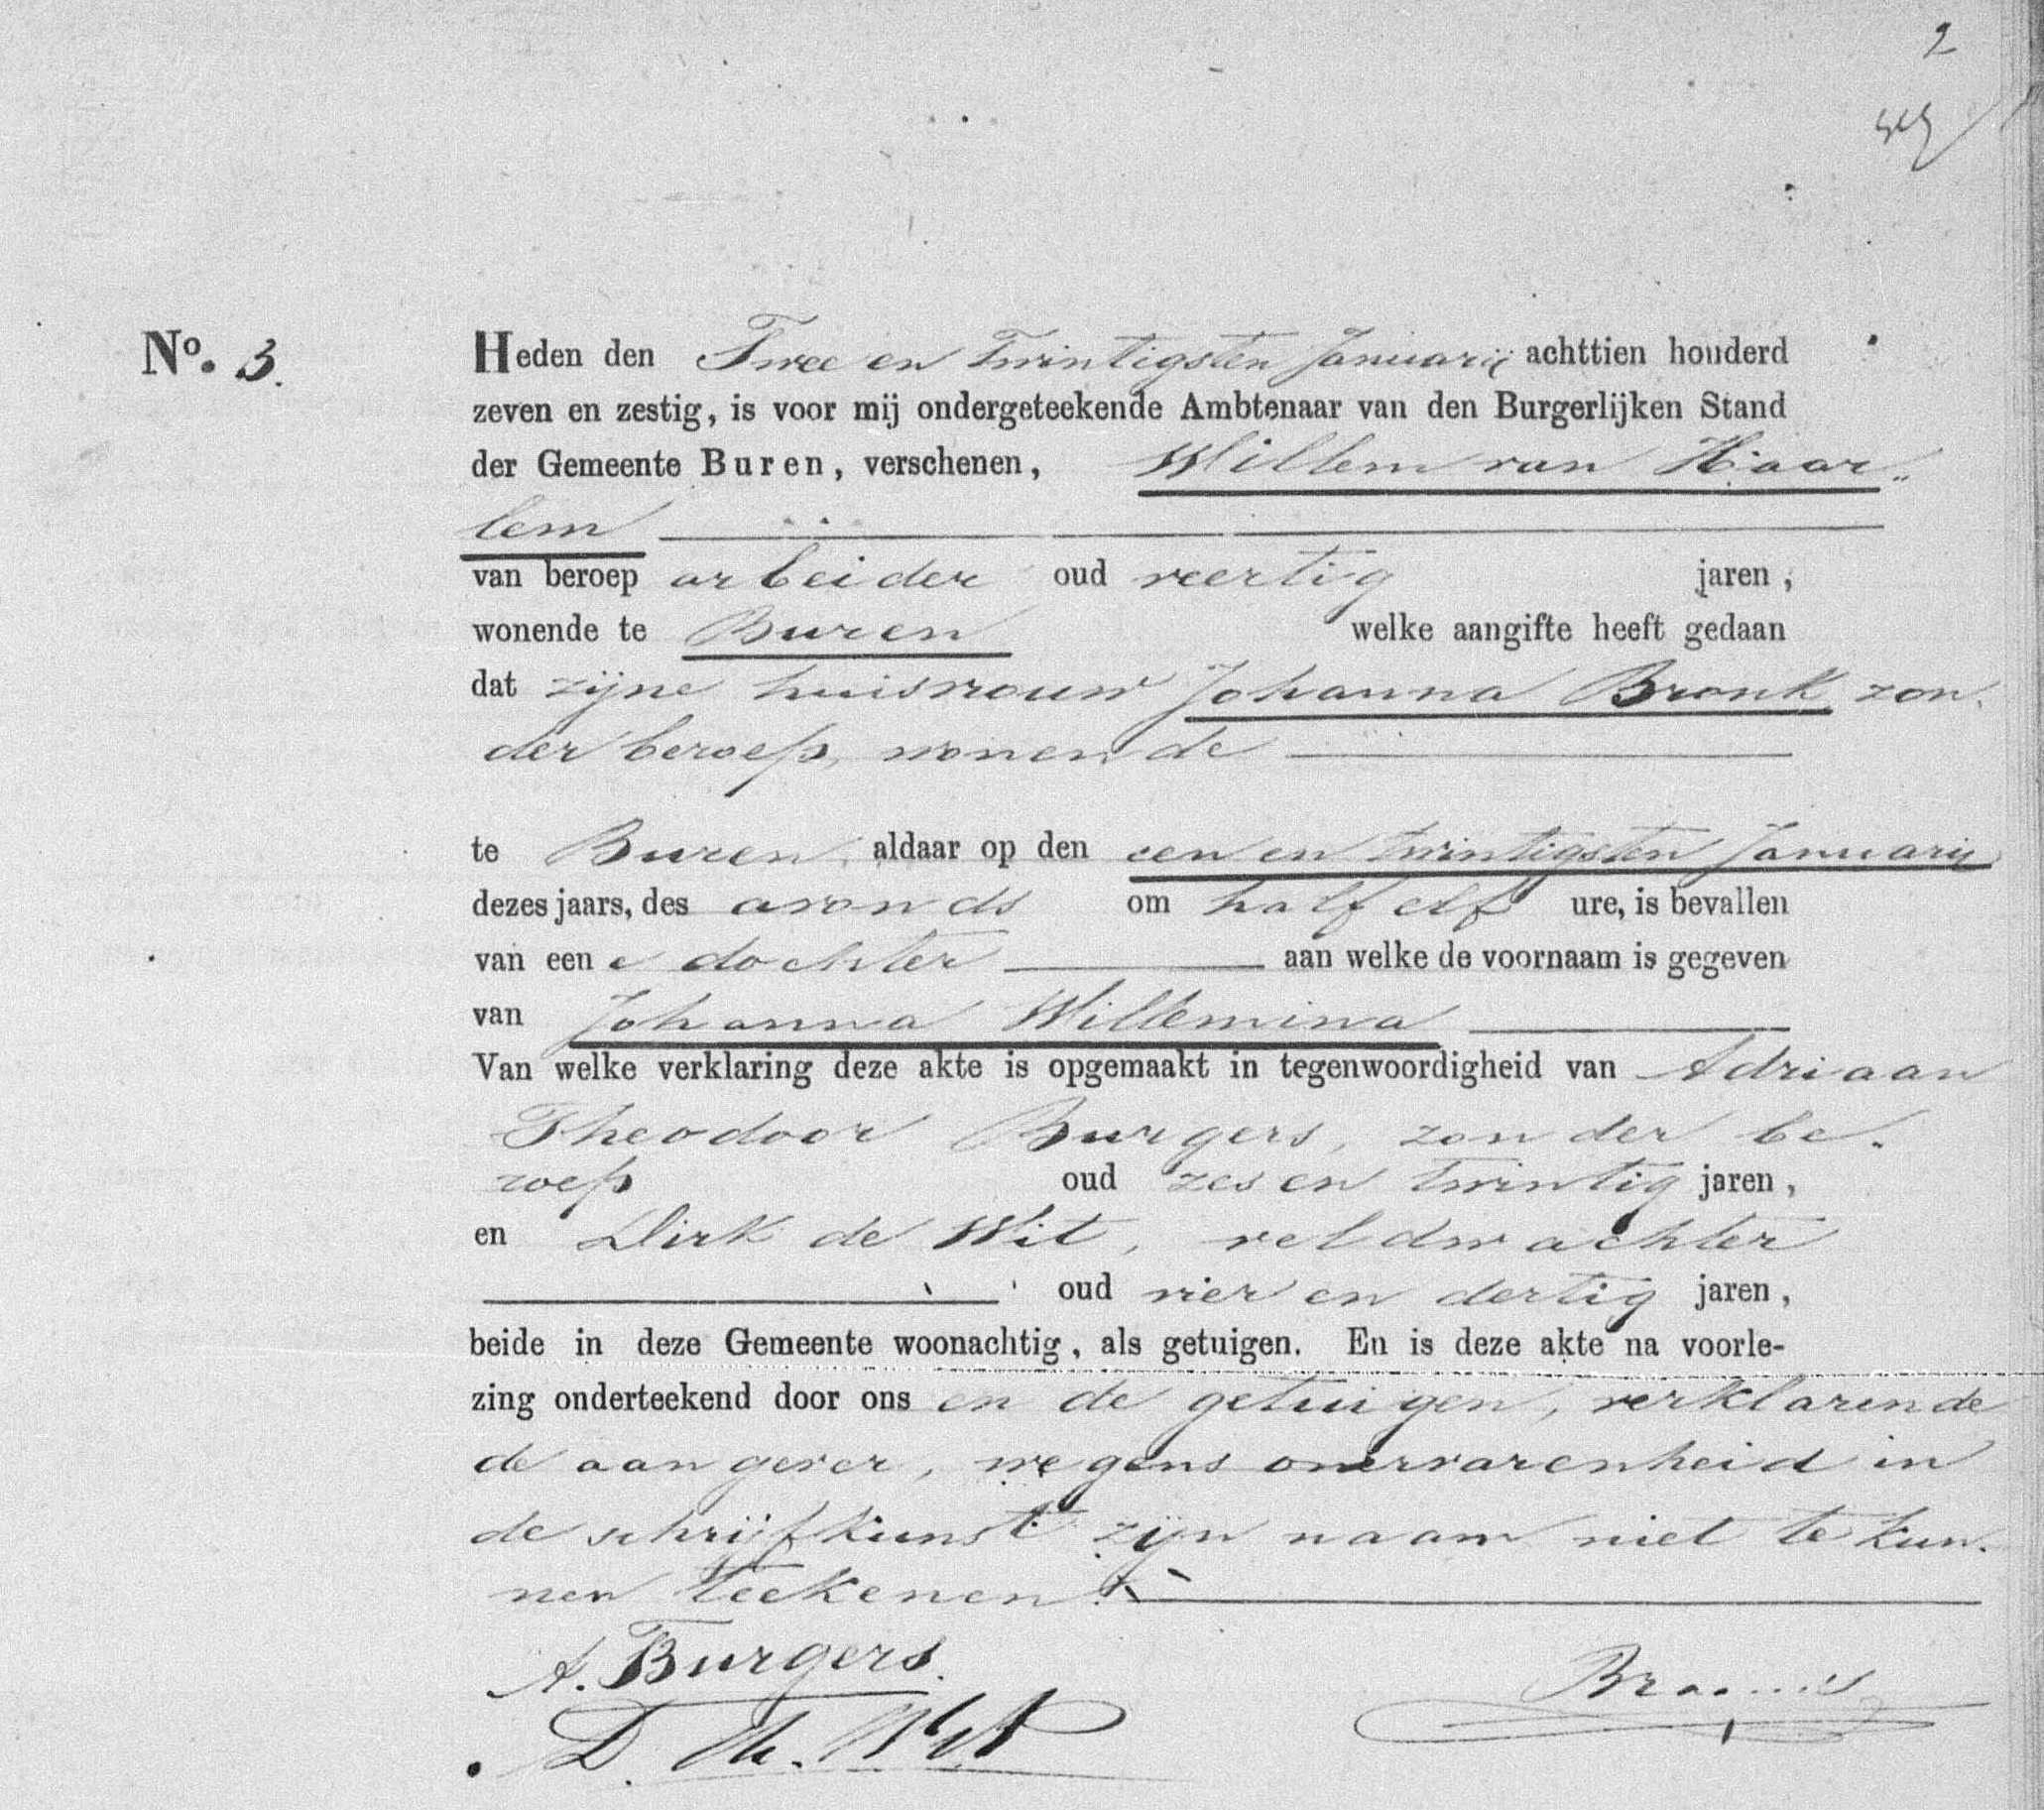 2
No. 3.
Heden den Twee en Twintigsten Januarij achttien honderd
zeven en zestig, is voor mij ondergeteekende Ambtenaar van den Burgerlijken Stand
der Gemeente Buren, verschenen, Willem van Haar„
lem
van beroep arbeider oud veertig jaren,
wonende te Buren welke aangifte heeft gedaan
dat zijne huisvrouw Johanna Bronk zon-
der beroep, wonende
te Buren aldaar op den een en twintigsten Januarij
dezes jaars, des avonds om half elf ure, is bevallen
van een e dochter aan welke de voornaam is gegeven
van Johanna Willemina
Van welke verklaring deze akte is opgemaakt in tegenwoordigheid van Adriaan
Theodoor Burgers, zonder be-
roep oud zes en twintig jaren,
en Dirk de Wit, veldwachter
oud vier en dertig jaren,
beide in deze Gemeente woonachtig, als getuigen. En is deze akte na voorle-
zing onderteekend door ons en de getuigen, verklarende
de aangever, wegens onervarenheid in
de schrijfkunst zijn naam niet te kun-
nen teekenen.
A. Burgers.